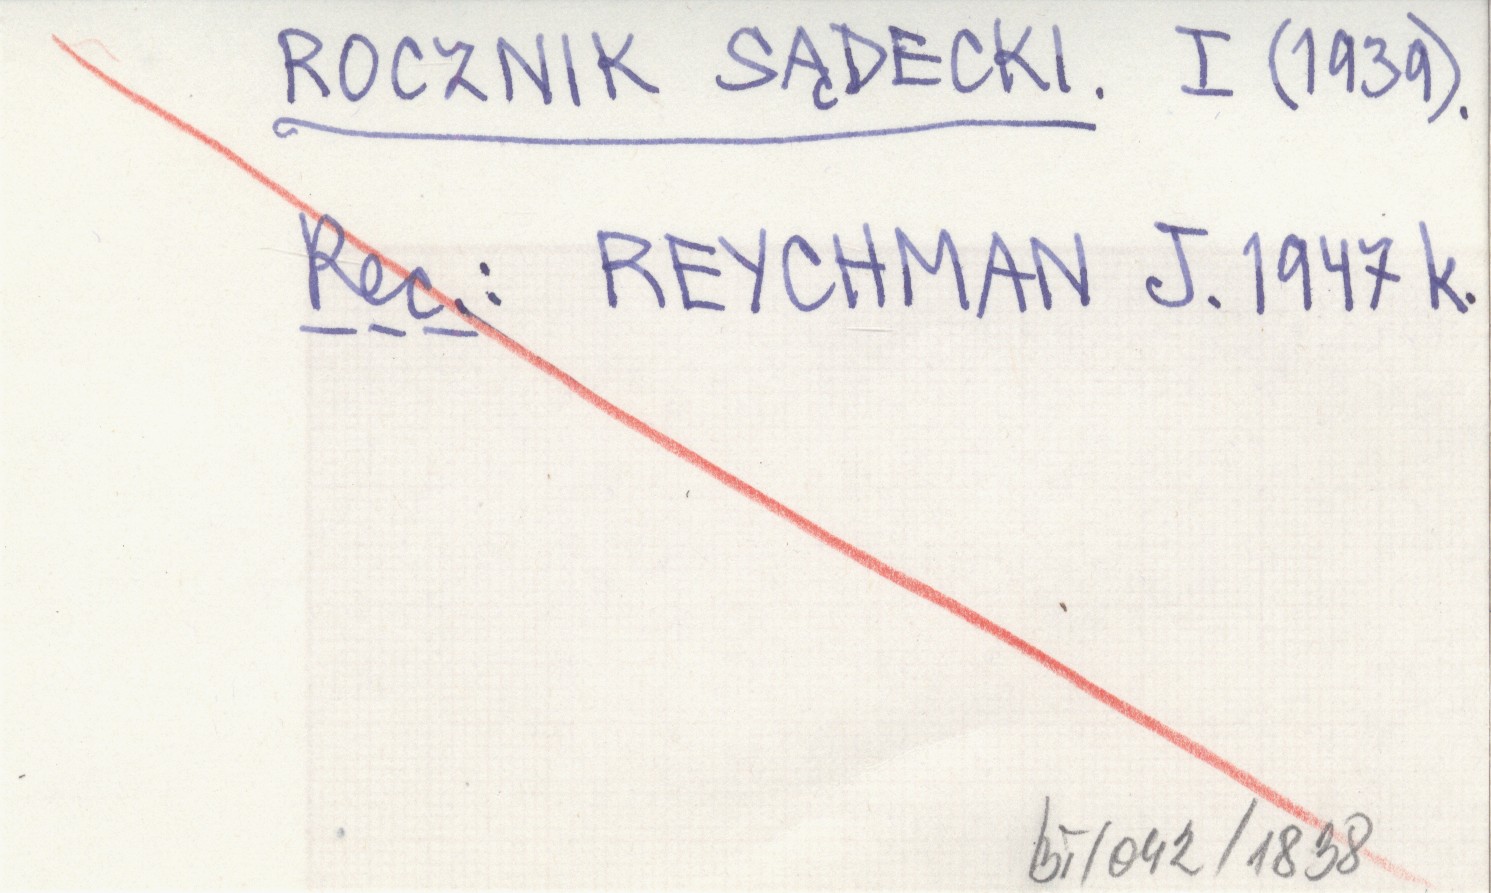 ROCZNIK SĄDECKI. I (1939).
Rec.: REYCHMAN J. 1947 k.
bi/042/1838